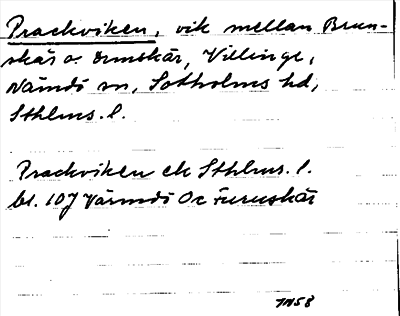 Prackviken, vik mellan Brun-
skär o. Ormskär, Villinge,
Nämdö sn, Sotholms hd,
Sthlms. l.
Prackviken ek Sthlms. l.
bl. 107 Värmdö Oc Furuskär
1958